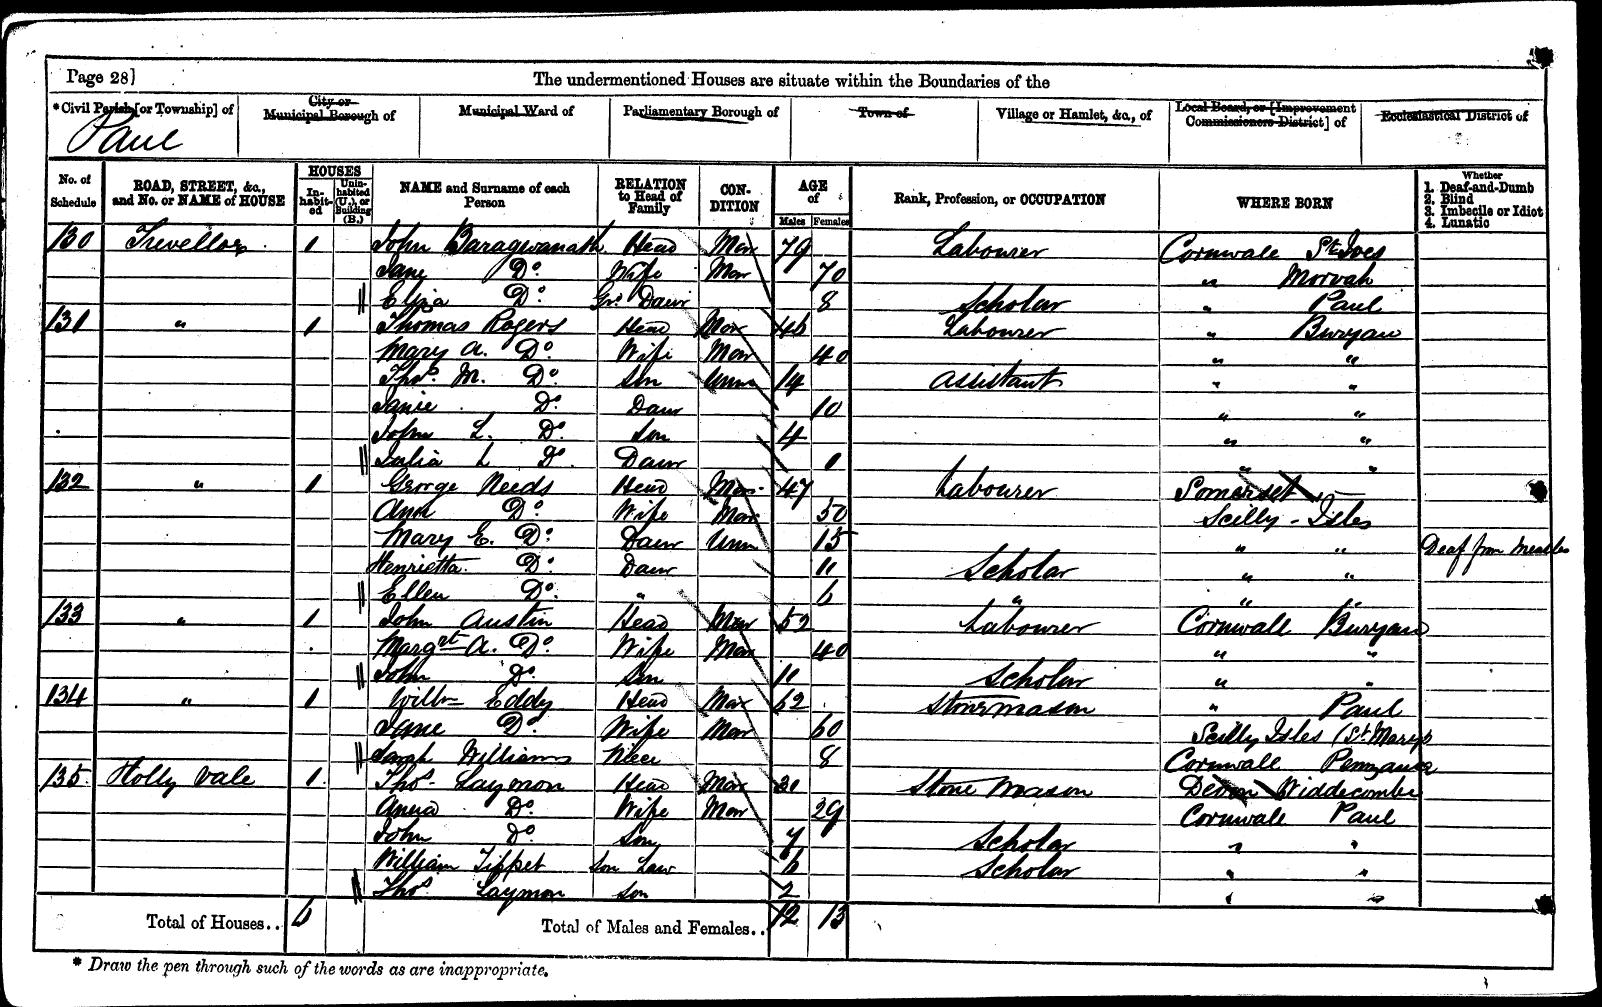 Page 28]
The undermentioned Houses are situate within the Boundaries of the
*Civil Parish [or Township] of City or Municipal Borough of Municipal Ward of Parliamentary Borough of Town of Village or Hamlet, &c., of Local Board, or [Improvement Commissioners District] of Ecclesiastical District of
Paul
No. of Schedule ROAD, STREET, &c., and No. or NAME of HOUSE HOUSES Inhabited Uninhabited (U.), or Building (B.) NAME and Surname of each Person RELATION to Head of Family CONDITION AGE of Males Females Rank, Profession, or OCCUPATION WHERE BORN Whether 1. Deaf-and-Dumb 2. Blind 3. Imbecile or Idiot 4. Lunatic
130 Trevelloe 1 John Baragwanath Head Mar 79 Labourer Cornwall St Ives
Jane Do. Wife Mar 70 " Morvah
Eliza Do. Gr. Daur 8 Scholar " Paul
131 " 1 Thomas Rogers Head Mar 46 Labourer " Buryan
Mary A. Do. Wife Mar 40 " "
Thos. M. Do. Son Unm 14 Assistant " "
Janie Do. Daur 10 " "
John L. Do. Son 4 " "
Julia L Do. Daur 1 " "
132 " 1 George Needs Head Mar 47 Labourer Somerset
Ann Do. Wife Mar 50 Scilly - Isles
Mary E. Do. Daur Unm 15 " " Deaf from Measles
Henrietta Do. Daur 11 Scholar " "
Ellen Do. " 6 " " "
133 " 1 John Austin Head Mar 52 Labourer Cornwall Buryan
Margrt A. Do. Wife Mar 40 " "
John Do. Son 11 Scholar " "
134 " 1 Willm Eddy Head Mar 62 Stonemason " Paul
Jane Do. Wife Mar 60 Scilly Isles (St Marys
Sarah Williams Niece 8 Cornwall Penzance
135 Holly Vale 1 Thos. Laymon Head Mar 30 Stone Mason Devon Widdecombe
Anna Do. Wife Mar 29 Cornwall Paul
John Do Son 7 Scholar " "
William Tippet Son Law 6 Scholar " "
Thos. Laymon Son 2 " "
Total of Houses.. 6 Total of Males and Females.. 12 13
* Draw the pen through such of the words as are inappropriate.